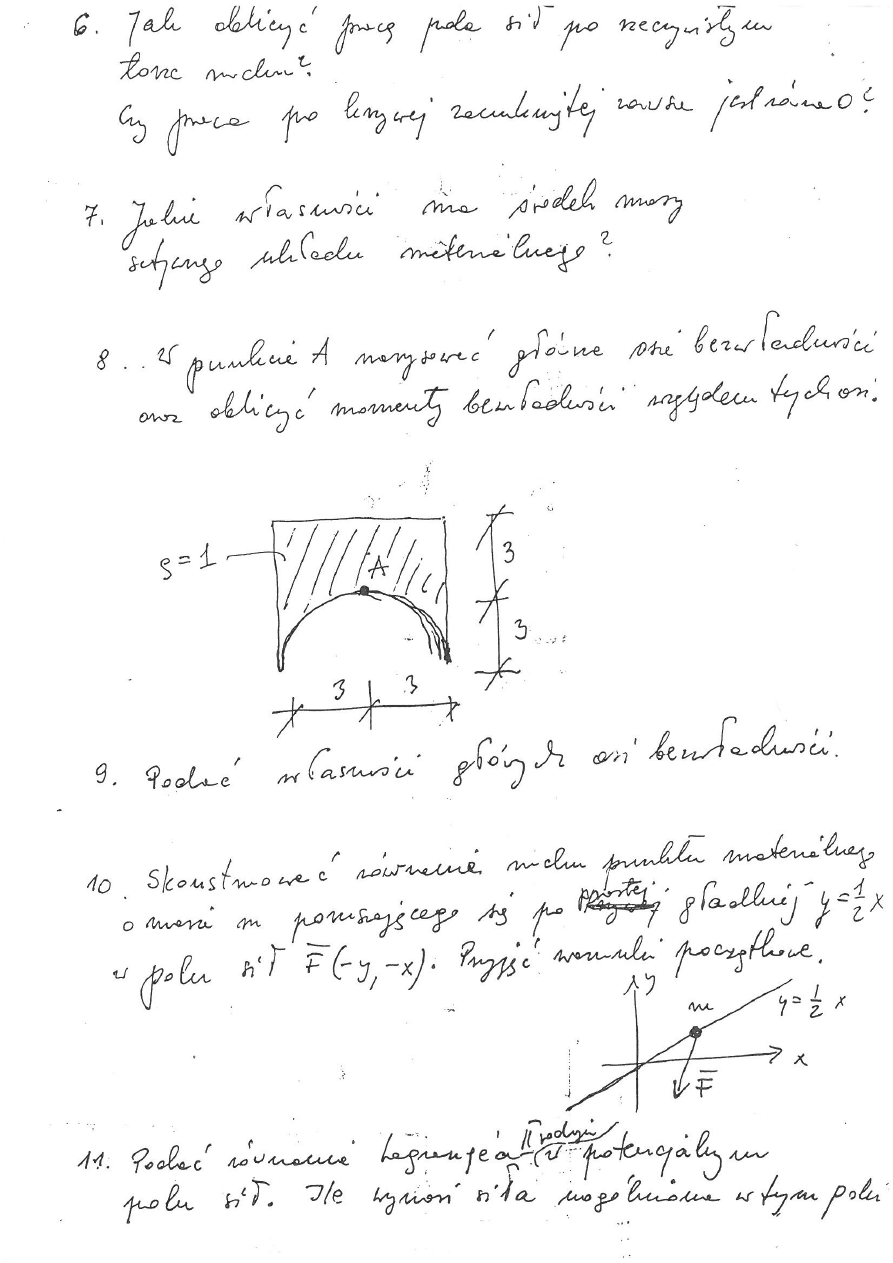 6. Jak obliczyć pracę pola sił po rzeczywistym
torze ruchu?
Czy praca po krzywej zamkniętej zawsze jest równa 0?
7. Jakie własności ma środek masy
sztywnego układu materialnego?
8. W punkcie A narysować główne osie bezwładności
oraz obliczyć momenty bezwładności względem tych osi.
ρ=1
A
3
3
3 3
9. Podać własności głównych osi bezwładności.
10. Skonstruować równanie ruchu punktu materialnego
o masie m poruszającego się po prostej gładkiej y=1/2 x
w polu sił F̅(-y,-x). Przyjąć warunki początkowe.
y
m
y=1/2 x
x
F̅
11. Podać równanie Lagrange'a II rodzaju w potencjalnym
polu sił. Ile wynosi siła uogólniona w tym polu